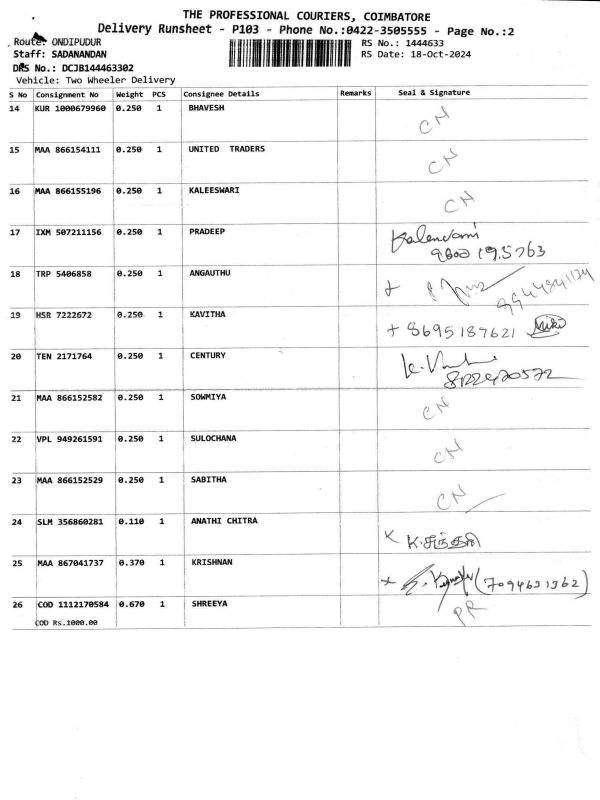 THE PROFESSIONAL COURIERS, COIMBATORE
Delivery Runsheet - P103 - Phone No.:0422-3505555 - Page No.:2
Route: ONDIPUDUR RS No.: 1444633
Staff: SADANANDAN RS Date: 18-Oct-2024
DRS No.: DCJB144463302
Vehicle: Two Wheeler Delivery
S No Consignment No Weight PCS Consignee Details Remarks Seal & Signature
14 KUR 1000679960 0.250 1 BHAVESH CN
15 MAA 866154111 0.250 1 UNITED TRADERS CN
16 MAA 866155196 0.250 1 KALEESWARI CN
17 IXM 507211156 0.250 1 PRADEEP
18 TRP 5406858 0.250 1 ANGAUTHU
19 HSR 7222672 0.250 1 KAVITHA + 8695187621
20 TEN 2171764 0.250 1 CENTURY
21 MAA 866152582 0.250 1 SOWMIYA CN
22 VPL 949261591 0.250 1 SULOCHANA CN
23 MAA 866152529 0.250 1 SABITHA CN
24 SLM 356860281 0.110 1 ANATHI CHITRA
25 MAA 867041737 0.370 1 KRISHNAN (7094631362)
26 COD 1112170584 0.670 1 SHREEYA PR
COD Rs.1000.00